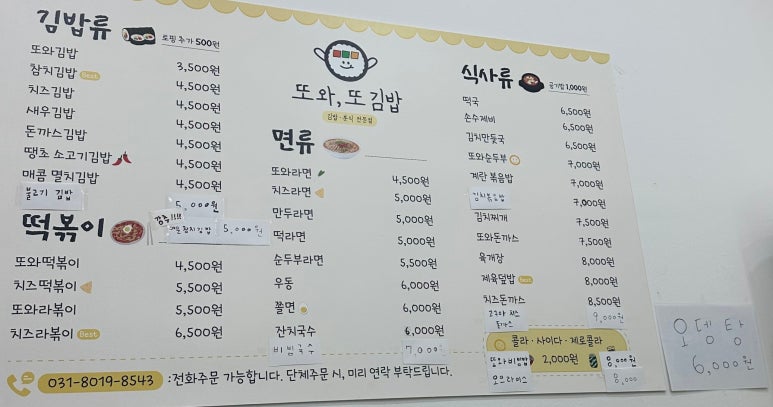 김밥류
토핑 추가 500원
또와김밥 3,500원
참치김밥 Best 4,500원
치즈김밥 4,500원
새우김밥 4,500원
돈까스김밥 4,500원
땡초 소고기김밥 4,500원
매콤 멸치김밥 4,500원
불고기 김밥 5,000원
강추!!!!
참치김밥 5,000원
떡볶이
또와떡볶이 4,500원
치즈떡볶이 5,500원
또와라볶이 5,500원
치즈라볶이 Best 6,500원
또와, 또김밥
김밥·분식 전문점
면류
또와라면 4,500원
치즈라면 5,000원
만두라면 5,000원
떡라면 5,000원
순두부라면 5,500원
우동 6,000원
쫄면 6,000원
잔치국수 6,000원
비빔국수 7,000원
식사류
공기밥 1,000원
떡국 6,500원
손수제비 6,500원
김치만둣국 6,500원
또와순두부 7,000원
계란 볶음밥 7,000원
김치볶음밥 7,000원
김치찌개 7,500원
또와돈까스 7,500원
육개장 8,000원
제육덮밥 Best 8,000원
치즈돈까스 8,500원
고구마 치즈
돈까스 9,000원
콜라·사이다·제로콜라
2,000원
또와비빔밥 8,000원
오므라이스 8,000
오뎅탕
6,000원
031-8019-8543 :전화주문 가능합니다. 단체주문 시, 미리 연락 부탁드립니다.